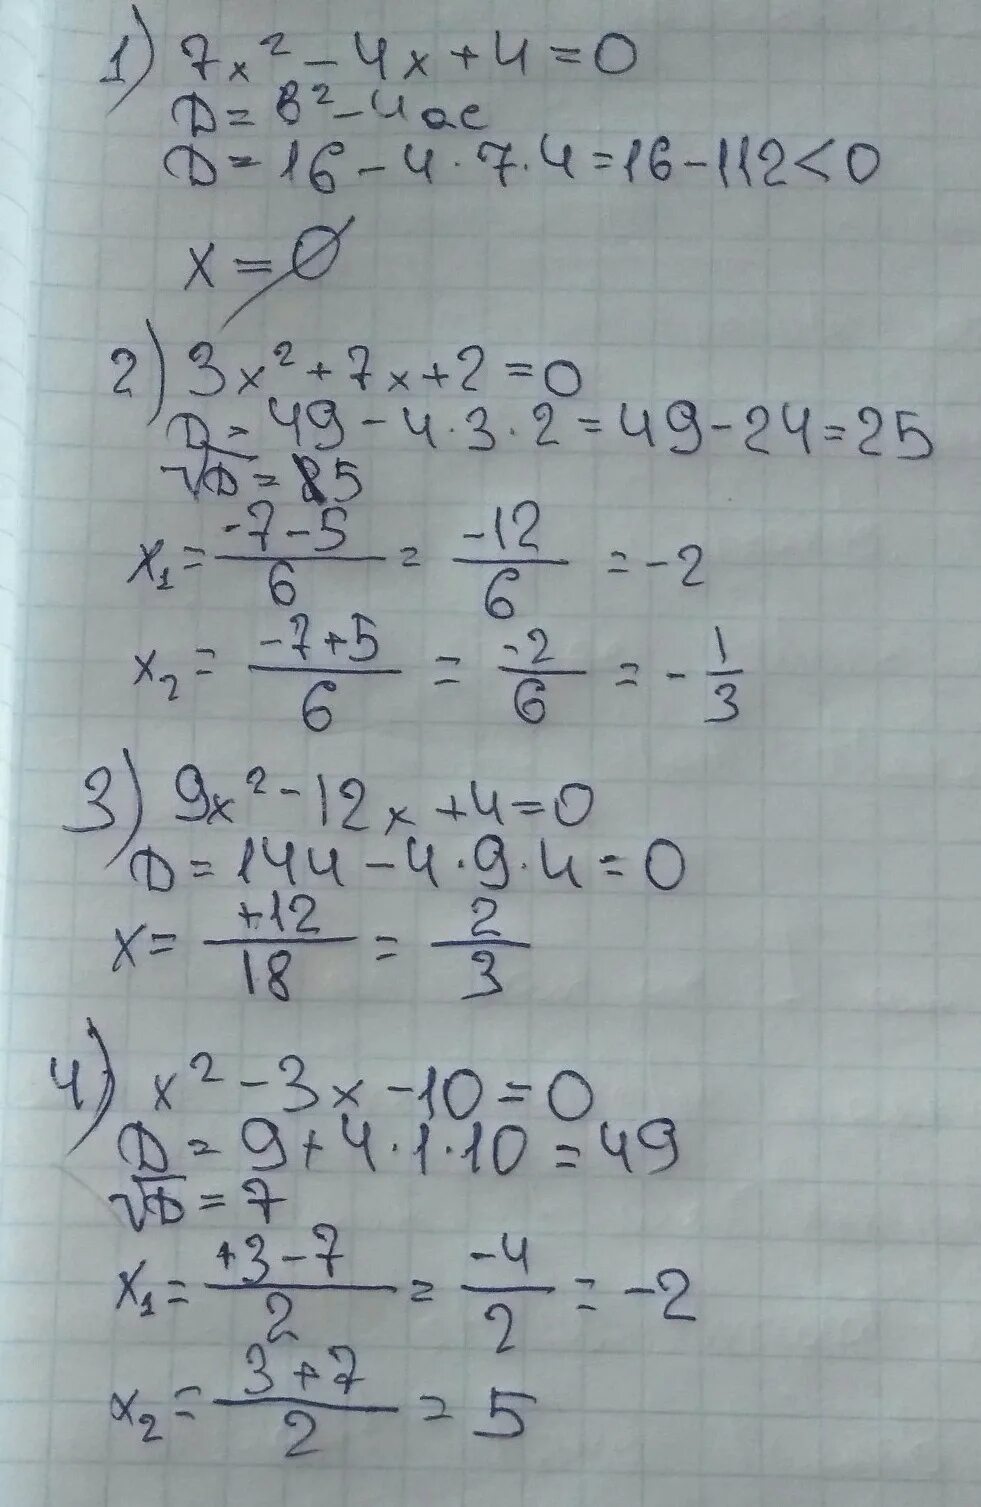 1) 7x² - 4x + 4 = 0
D = в² - 4ас
D = 16 - 4 · 7 · 4 = 16 - 112 < 0
x = ∅
2) 3x² + 7x + 2 = 0
D = 49 - 4 · 3 · 2 = 49 - 24 = 25
√D = 5
x₁ = (-7-5)/6 = -12/6 = -2
x₂ = (-7+5)/6 = -2/6 = -1/3
3) 9x² - 12x + 4 = 0
D = 144 - 4 · 9 · 4 = 0
x = +12/18 = 2/3
4) x² - 3x - 10 = 0
D = 9 + 4 · 1 · 10 = 49
√D = 7
x₁ = (+3-7)/2 = -4/2 = -2
x₂ = (3+7)/2 = 5